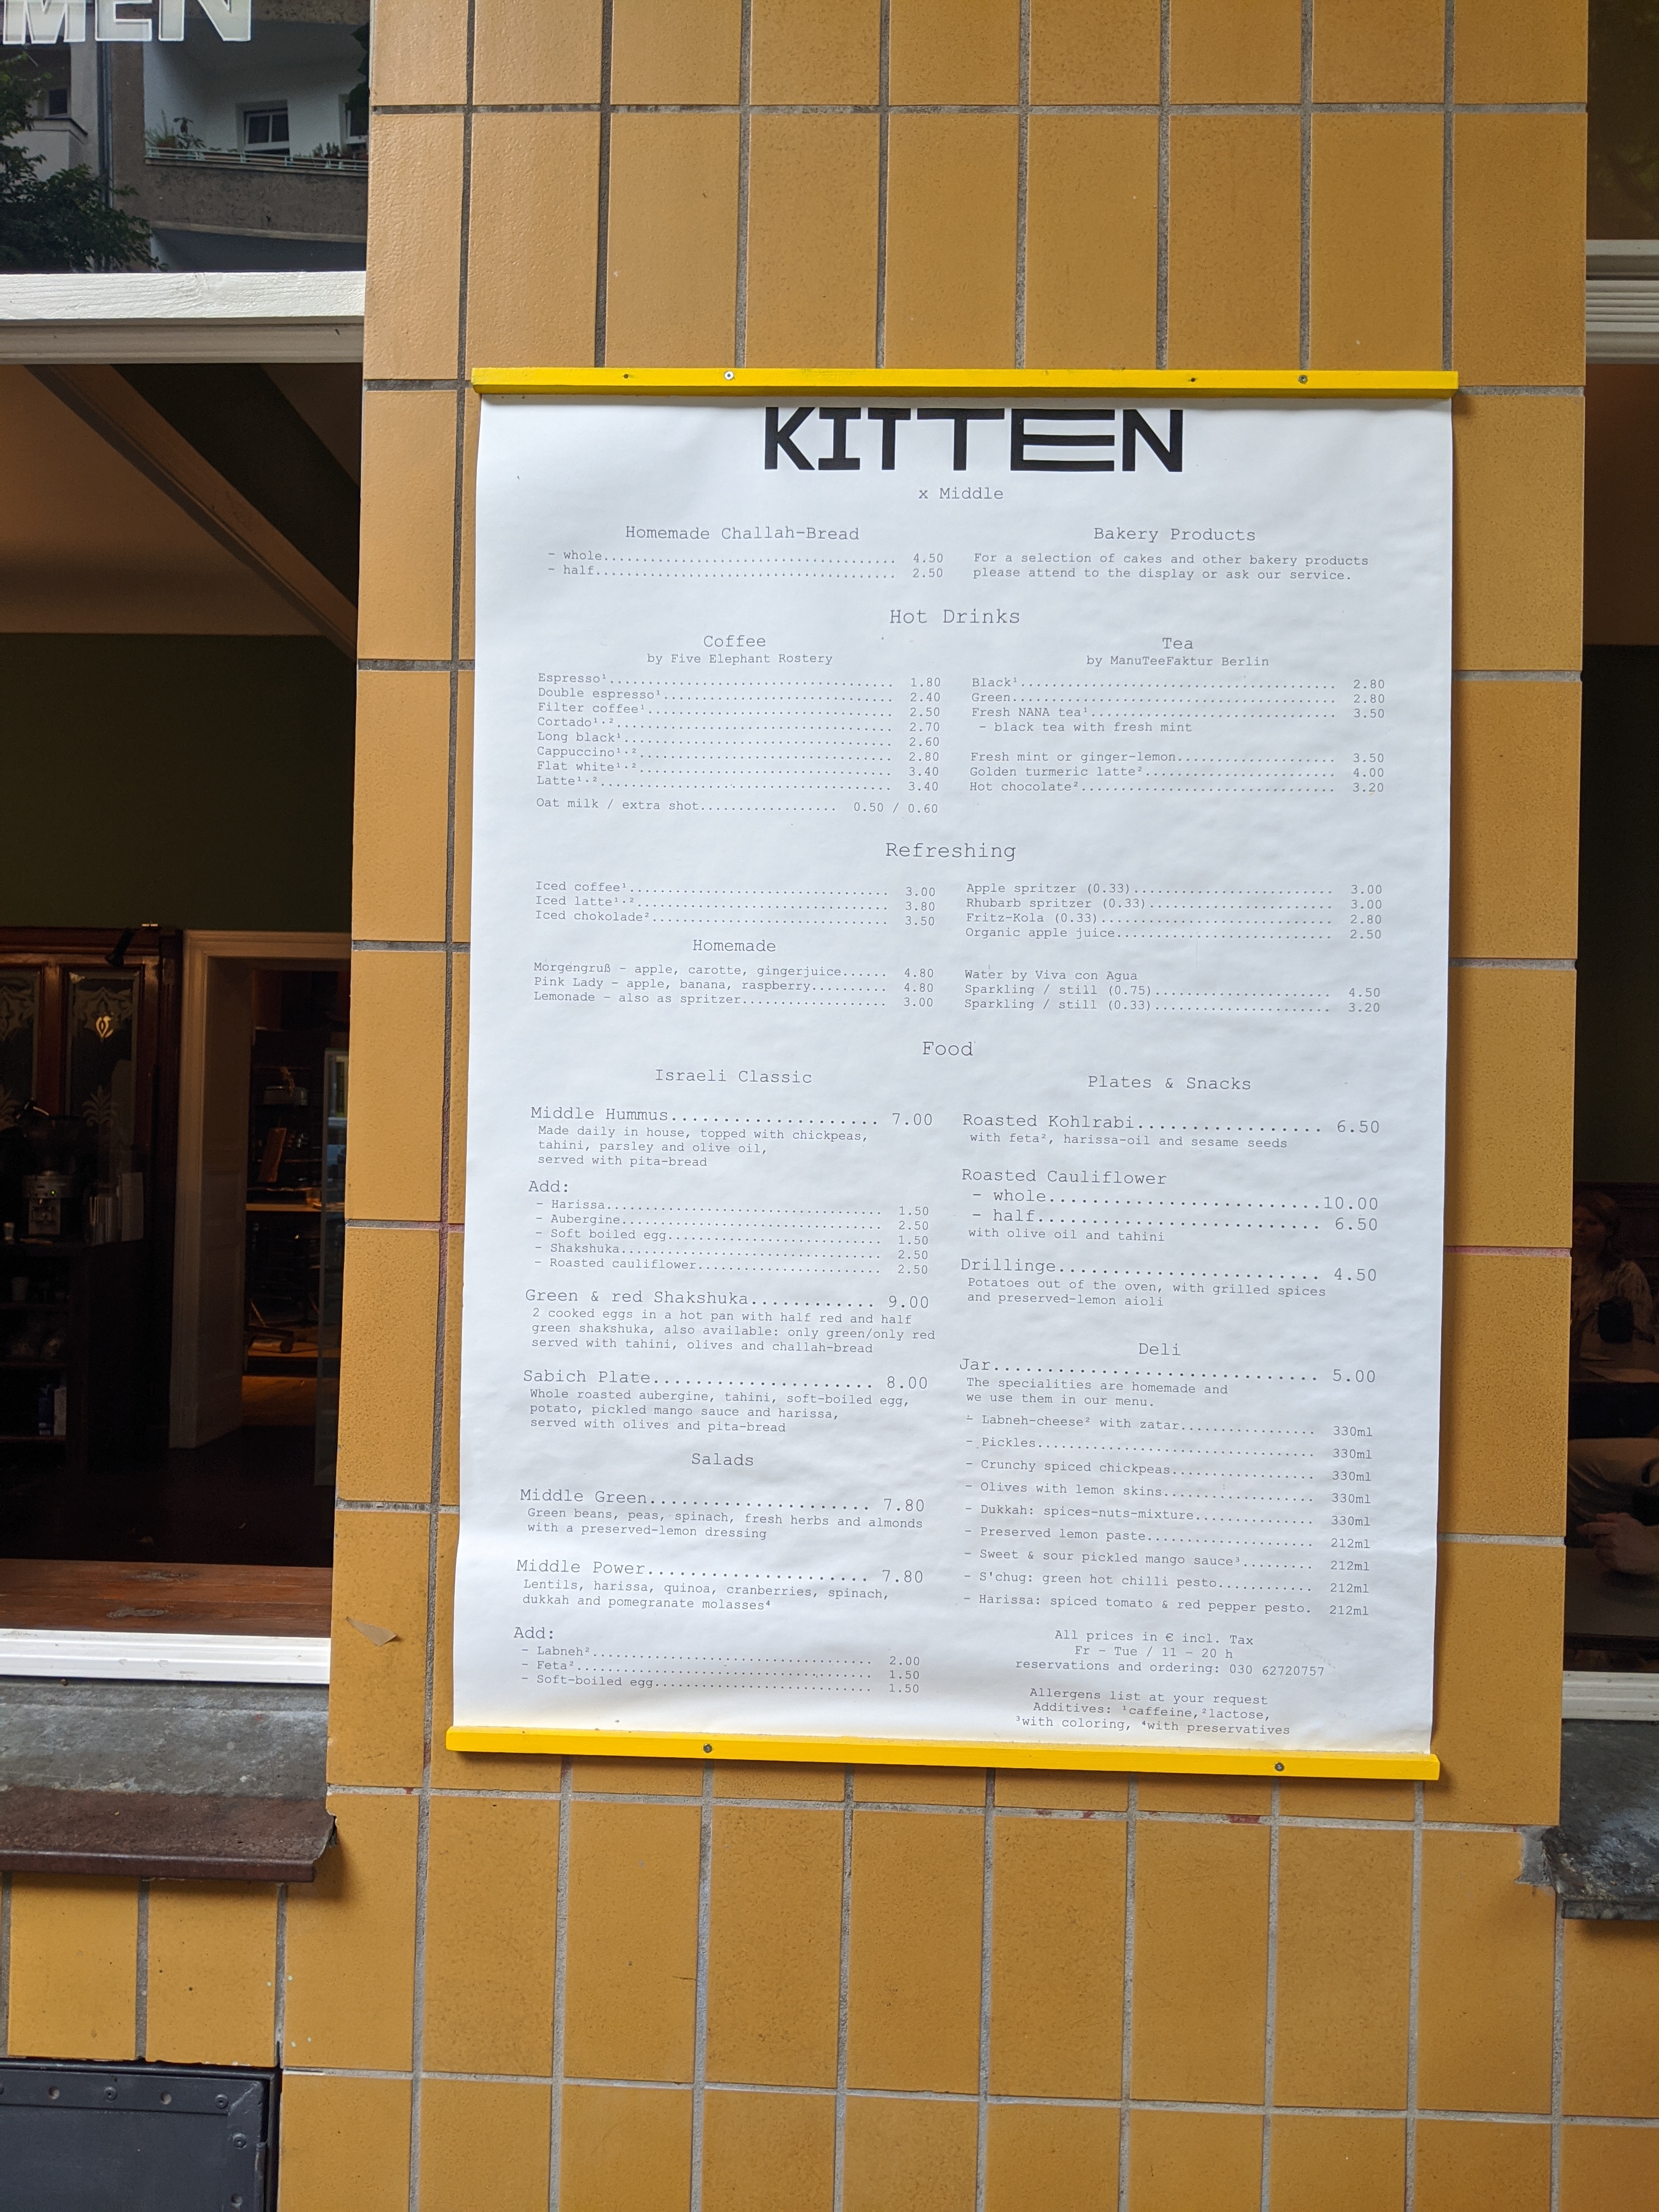 MEN
KITTEN
x Middle
Homemade Challah-Bread
- whole..................................... 4.50
- half...................................... 2.50
Bakery Products
For a selection of cakes and other bakery products
please attend to the display or ask our service.
Hot Drinks
Coffee
by Five Elephant Rostery
Espresso¹.................................... 1.80
Double espresso¹............................. 2.40
Filter coffee¹............................... 2.50
Cortado¹·²................................... 2.70
Long black¹.................................. 2.60
Cappuccino¹·²................................ 2.80
Flat white¹·²................................ 3.40
Latte¹·²..................................... 3.40
Oat milk / extra shot................. 0.50 / 0.60
Tea
by ManuTeeFaktur Berlin
Black¹........................................ 2.80
Green......................................... 2.80
Fresh NANA tea¹............................... 3.50
- black tea with fresh mint
Fresh mint or ginger-lemon.................... 3.50
Golden turmeric latte²........................ 4.00
Hot chocolate²................................ 3.20
Refreshing
Iced coffee¹................................. 3.00
Iced latte¹·²................................ 3.80
Iced chokolade².............................. 3.50
Homemade
Morgengruß - apple, carotte, gingerjuice...... 4.80
Pink Lady - apple, banana, raspberry.......... 4.80
Lemonade - also as spritzer................... 3.00
Apple spritzer (0.33)......................... 3.00
Rhubarb spritzer (0.33)....................... 3.00
Fritz-Kola (0.33)............................. 2.80
Organic apple juice........................... 2.50
Water by Viva con Agua
Sparkling / still (0.75)...................... 4.50
Sparkling / still (0.33)...................... 3.20
Food
Israeli Classic
Middle Hummus................. 7.00
Made daily in house, topped with chickpeas,
tahini, parsley and olive oil,
served with pita-bread
Add:
- Harissa................................... 1.50
- Aubergine................................. 2.50
- Soft boiled egg........................... 1.50
- Shakshuka................................. 2.50
- Roasted cauliflower....................... 2.50
Green & red Shakshuka............ 9.00
2 cooked eggs in a hot pan with half red and half
green shakshuka, also available: only green/only red
served with tahini, olives and challah-bread
Sabich Plate..................... 8.00
Whole roasted aubergine, tahini, soft-boiled egg,
potato, pickled mango sauce and harissa,
served with olives and pita-bread
Salads
Middle Green..................... 7.80
Green beans, peas, spinach, fresh herbs and almonds
with a preserved-lemon dressing
Middle Power..................... 7.80
Lentils, harissa, quinoa, cranberries, spinach,
dukkah and pomegranate molasses⁴
Add:
- Labneh².................................... 2.00
- Feta²...................................... 1.50
- Soft-boiled egg............................ 1.50
Plates & Snacks
Roasted Kohlrabi................ 6.50
with feta², harissa-oil and sesame seeds
Roasted Cauliflower
- whole..........................10.00
- half........................... 6.50
with olive oil and tahini
Drillinge......................... 4.50
Potatoes out of the oven, with grilled spices
and preserved-lemon aioli
Deli
Jar............................... 5.00
The specialities are homemade and
we use them in our menu.
- Labneh-cheese² with zatar................. 330ml
- Pickles................................... 330ml
- Crunchy spiced chickpeas.................. 330ml
- Olives with lemon skins................... 330ml
- Dukkah: spices-nuts-mixture............... 330ml
- Preserved lemon paste..................... 212ml
- Sweet & sour pickled mango sauce³......... 212ml
- S'chug: green hot chilli pesto............ 212ml
- Harissa: spiced tomato & red pepper pesto. 212ml
All prices in € incl. Tax
Fr - Tue / 11 - 20 h
reservations and ordering: 030 62720757
Allergens list at your request
Additives: ¹caffeine,²lactose,
³with coloring, ⁴with preservatives